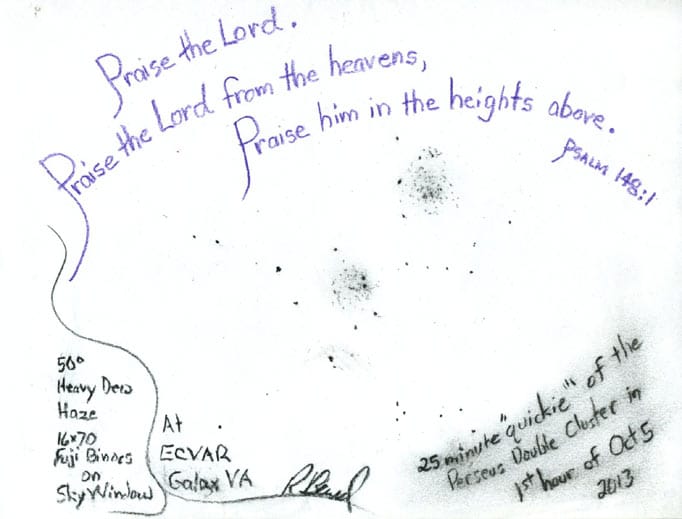 Praise the Lord.
Praise the Lord from the heavens,
Praise him in the heights above.
PSALM 148:1
50°
Heavy Dew
Haze
16x70
Fuji Binocs
on
Sky Window
At
ECVAR
Galax VA
25 minute "quickie" of the
Perseus Double Cluster in
1st hour of Oct 5
2013